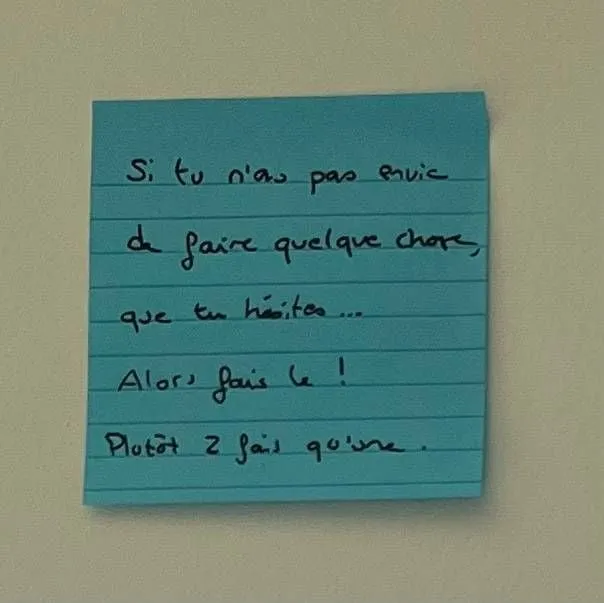 Si tu n'as pas envie
de faire quelque chose,
que tu hésites...
Alors fais le !
Plutôt 2 fois qu'une.